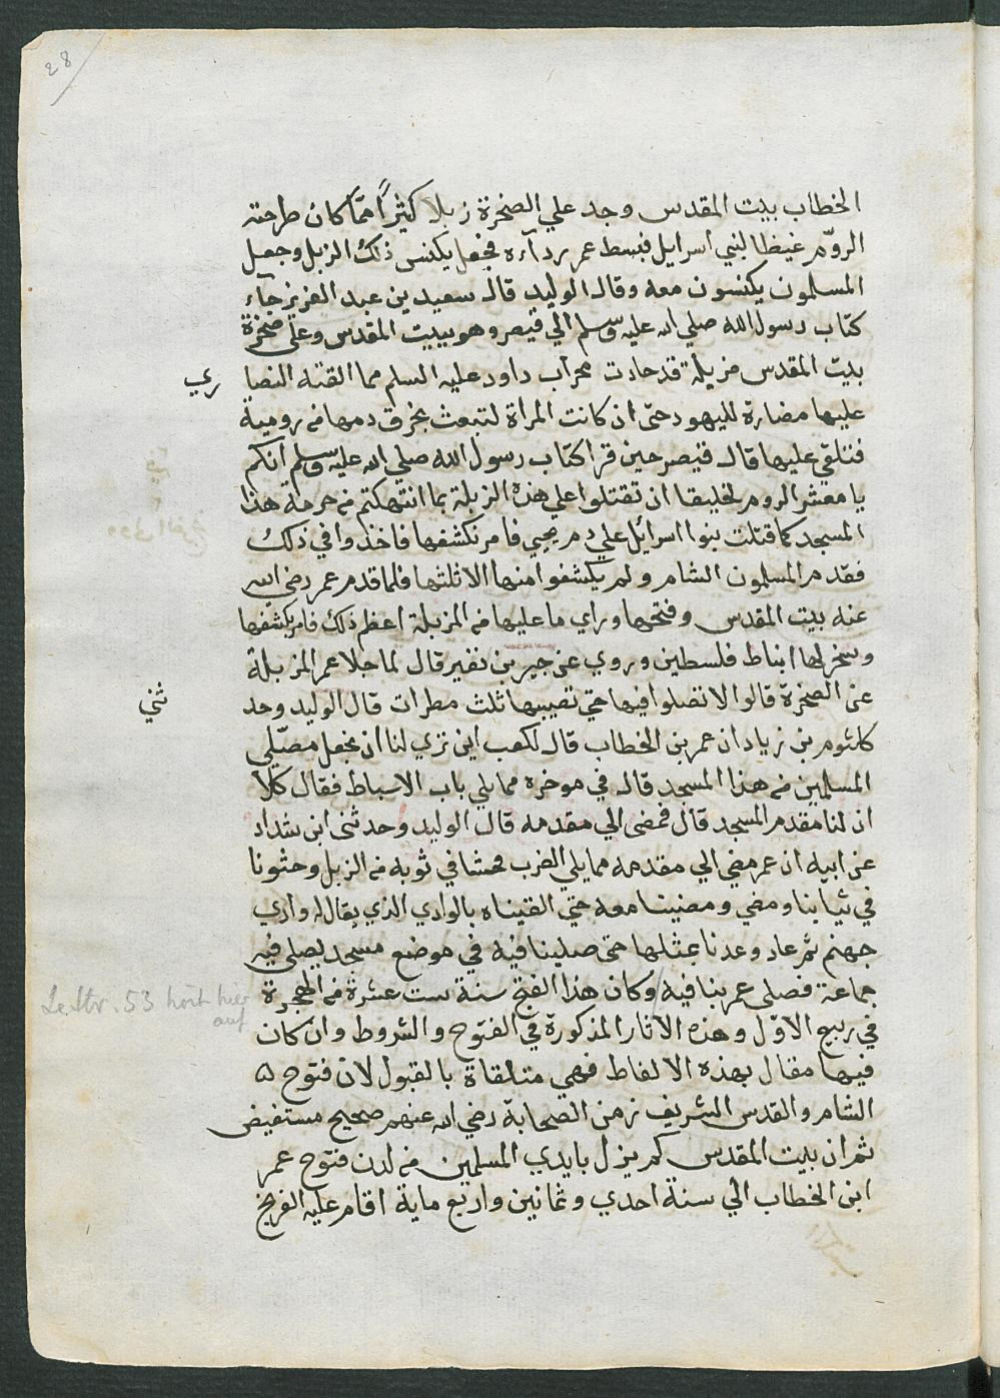 28
الخطاب بيت المقدس وجد علي الصخرة زبلا كثيرًا ممّا كان طرحته
الروم غيظا لبني اسرايل فبسط عمر ردآءه فجعل يكنس ذلك الزبل وجعل
المسلمون يكنسون معه وقال الوليد قال سعيد بن عبد العزيز جآء
كتاب رسول الله صلي الله عليه وسلم الي قيصر وهو ببيت المقدس وعلي صخرة
بيت المقدس مزبلة قد حاذت محراب داود عليه السلم مما القته النصا ري
عليها مضارة لليهود حتي ان كانت المراة لتبعث بخرق دمها من رومية
فتلقي عليها قال قيصر حين قرا كتاب رسول الله صلي الله عليه وسلم انكم
يا معشر الروم لخليقا ان تقتلوا علي هذه الزبلة بما انتهكتم من حرمة هذا
المسجد كما قتلت بنوا اسرائيل علي دم يحيي فامر نكشفها فاخذوا في ذلك
فقدم المسلمون الشام ولم يكشفوا منها الا ثلثها فلما قدم عمر رضي الله
عنه بيت المقدس وفتحها وراي ما عليها من المزبلة اعظم ذلك فامر بكشفها
وسخر لها انباط فلسطين وروي عن جبير بن نفير قال لما جلا عمر المزبلة
عن الصخرة قالوا لا تصلوا فيها حتي تصيبها ثلث مطرات قال الوليد وحد ثني
كلثوم بن زياد ان عمر بن الخطاب قال لكعب اين تري لنا ان نجعل مصّلي
المسلمين من هذا المسجد قال في موخره مما يلي باب الاسباط فقال كلا
ان لنا مقدم المسجد قال فمضي الي مقدمه قال الوليد وحدثني ابن شداد
عن ابيه ان عمر مضي الي مقدمه مما يلي الغرب فحشا في ثوبه من الزبل وحثونا
في ثيابنا ومضي ومضينا معه حتي القيناه بالوادي الذي يقال له وادي
جهنم ثم عاد وعدنا بمثلها حتي صلينا فيه في موضع مسجد يصلي فيه
جماعة فصلي عمر بنا فيه وكان هذا الفتح سنة ست عشرة من الهجرة
Le Str. 53 hört hier
auf
في ربيع الاوّل وهذه الاثار المذكورة في الفتوح والشروط وان كان
فيها مقال بهذه الالفاظ فهي متلقاة بالقبول لان فتوح
الشام والقدس الشريف زمن الصحابة رضي الله عنهم صحيح مستفيض
ثم ان بيت المقدس لم يزل بايدي المسلمين من لدن فتوح عمر
ابن الخطاب الي سنة احدي وثمانين واربع ماية اقام عليه الفرنج